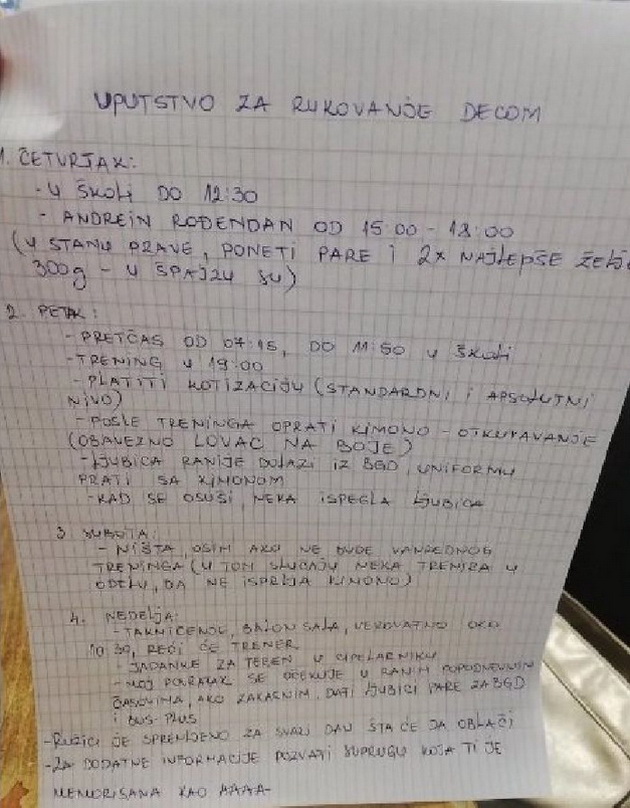 UPUTSTVO ZA RUKOVANJE DECOM
1. ČETVRTAK:
- U ŠKOLI DO 12:30
- ANDREIN ROĐENDAN OD 15:00 - 18:00
(U STANU PRAVE, PONETI PARE I 2X NAJLEPŠE ŽELJE
300g - U ŠPAJZU SU)
2. PETAK:
- PRETČAS OD 07:15, DO 11:50 U ŠKOLI
- TRENING U 19:00
- PLATITI KOTIZACIJU (STANDARDNI I APSOLUTNI
NIVO)
- POSLE TRENINGA OPRATI KIMONO - OTKUVAVANJE
(OBAVEZNO LOVAC NA BOJE)
- LJUBICA RANIJE DOLAZI IZ BGD, UNIFORMU
PRATI SA KIMONOM
- KAD SE OSUŠI, NEKA ISPEGLA LJUBICA
3. SUBOTA:
- NIŠTA, OSIM AKO NE BUDE VANREDNOG
TRENINGA (U TOM SLUČAJU NEKA TRENIRA U
ODELU, DA NE ISPRLJA KIMONO)
4. NEDELJA:
- TAKMIČENJE, BALON SALA, VEROVATNO OKO
10:30, REĆI ĆE TRENER
- JADANKE ZA TEREN U CIPELARNIKU
- MOJ POVRATAK SE OČEKUJE U RANIM POPODNEVNIM
ČASOVIMA, AKO ZAKASNIM, DATI LJUBICI PARE ZA BGD
I BUS-PLUS
- RUŽICI JE SPREMLJENO ZA SVAKI DAN ŠTA ĆE DA OBLAČI
- ZA DODATNE INFORMACIJE POZVATI SUPRUGU KOJA TI JE
MEMORISANA KAO AAAA-